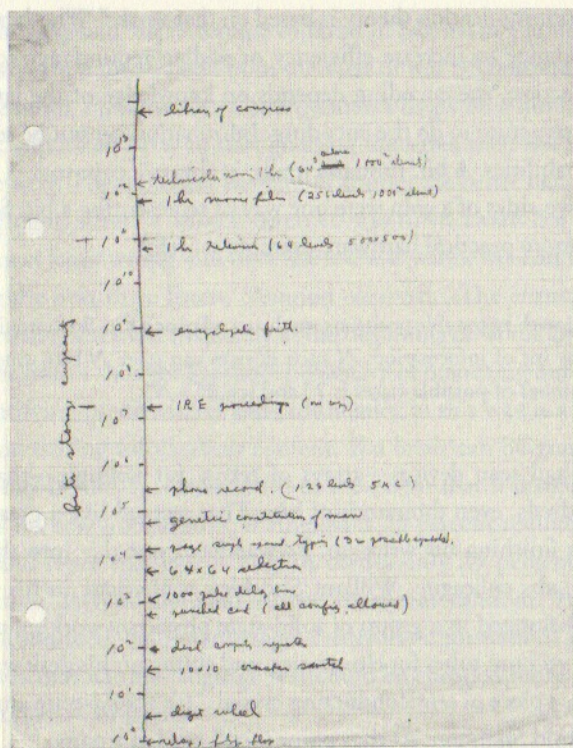 library of congress
10¹³
technicolor movie 1 hr (64³ colors 1000² elements)
10¹²
1 hr movie film (256 levels 1000² elements)
10¹¹
1 hr television (64 levels 500x500)
10¹⁰
10⁹
encyclopedia britt.
10⁸
IRE proceedings (no cuts)
10⁷
10⁶
phono record. (128 levels 5KC)
10⁵
genetic constitution of man
page single spaced typing (32 possible symbols)
10⁴
64x64 selection
10³
1000 pulse delay line
punched card (all config. allowed)
10²
dial
10x10 crossbar switch
10¹
digit wheel
10⁰
relay, flip flop
bits storage capacity